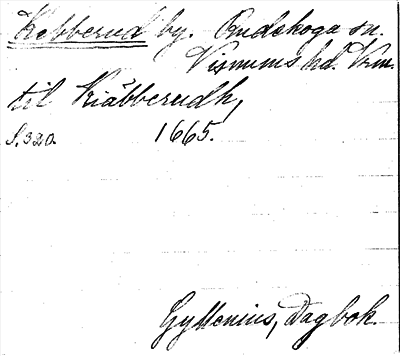 Kebberud by. Rudskoga sn.
Visnums hd. Vrm.
til Kiäbberudh,
S. 320. 1665.
Gyllenius, Dagbok.